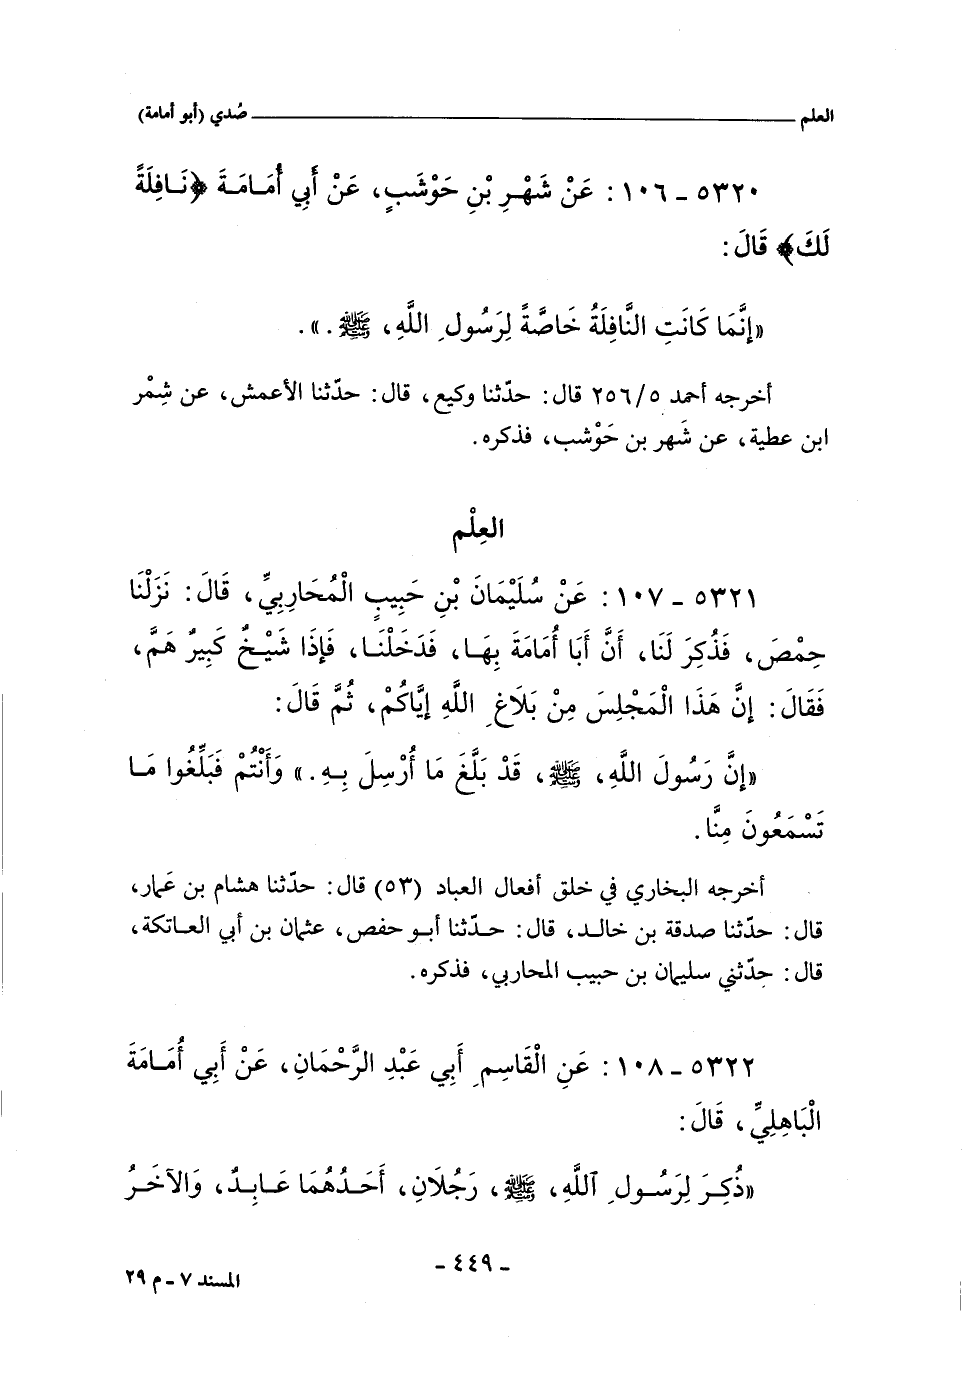 العلم ــــــــــــــــــــــــــــــــــــ صُدي (أبو أمامة)
٥٣٢٠ ـ ١٠٦ : عَنْ شَهْرِ بْنِ حَوْشَبٍ، عَنْ أَبِي أُمَامَةَ ﴿نَافِلَةً
لَكَ﴾ قَالَ :
«إِنَّمَا كَانَتِ النَّافِلَةُ خَاصَّةً لِرَسُولِ اللَّهِ، ﷺ.».
أخرجه أحمد ٢٥٦/٥ قال : حدّثنا وكيع، قال : حدّثنا الأعمش، عن شِمْر
ابن عطية، عن شَهر بن حَوْشب، فذكره.
العِلْم
٥٣٢١ ـ ١٠٧ : عَنْ سُلَيْمَانَ بْنِ حَبِيبٍ الْمُحَارِبِيِّ، قَالَ : نَزَلْنَا
حِمْصَ، فَذُكِرَ لَنَا، أَنَّ أَبَا أُمَامَةَ بِهَا، فَدَخَلْنَا، فَإِذَا شَيْخٌ كَبِيرٌ هَمَّ،
فَقَالَ : إِنَّ هَذَا الْمَجْلِسَ مِنْ بَلَاغِ اللَّهِ إِيَّاكُمْ، ثُمَّ قَالَ :
«إِنَّ رَسُولَ اللَّهِ، ﷺ، قَدْ بَلَّغَ مَا أُرْسِلَ بِهِ.» وَأَنْتُمْ فَبَلِّغُوا مَا
تَسْمَعُونَ مِنَّا.
أخرجه البخاري في خلق أفعال العباد (٥٣) قال : حدّثنا هشام بن عَمار،
قال : حدّثنا صدقة بن خالد، قال : حدّثنا أبو حفص، عثمان بن أبي العاتكة،
قال : حدّثني سليمان بن حبيب المحاربي، فذكره.
٥٣٢٢ ـ ١٠٨ : عَنِ الْقَاسِمِ أَبِي عَبْدِ الرَّحْمَانِ، عَنْ أَبِي أُمَامَةَ
الْبَاهِلِيِّ، قَالَ :
«ذُكِرَ لِرَسُولِ ٱللَّهِ، ﷺ، رَجُلَانِ، أَحَدُهُمَا عَابِدٌ، وَالآخَرُ
ـ ٤٤٩ ـ
المسند ٧ ـ م ٢٩